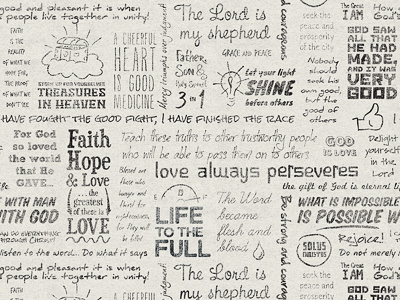 good and pleasant it is when
people live together in unity!
FAITH
IS THE
REALITY
OF WHAT WE
HOPE FOR,
THE PROOF
OF WHAT WE
DON'T SEE
STORE UP FOR YOURSELVES
TREASURES
IN HEAVEN
A CHEERFUL
HEART
IS GOOD
MEDICINE
Mercy triumphs over judgment
The Lord is
my shepherd
Father,
Son &
Holy Spirit
3 in 1
GRACE AND PEACE
Let your light
SHINE
before others
and courageous
seek the
peace and
prosperity
of the city
Nobody
should
seek his
own good,
but the
good of
others
The Great
I AM
How good
God's
GOD SAW
ALL THAT
HE HAD
MADE,
AND IT WAS
VERY
GOOD
HAVE FOUGHT THE GOOD FIGHT, I HAVE FINISHED THE RACE
For God
so loved
the world
that He
GAVE...
Faith
Hope
& Love
...the
greatest
of these is
LOVE
Teach these truths to other trustworthy people
who will be able to pass them on to others
GOD
IS LOVE
Delight
yourself
in the
Lord
love always perseveres
the gift of God is eternal
Blessed are
those who
hunger and
thirst for
righteousness,
for they will
be filled
LIFE
TO THE
FULL
The Word
became
flesh and
blood
Be strong and courageous
WITH MAN
WITH GOD
CAN DO EVERYTHING
THROUGH CHRIST!
listen to the word... Do what it says
WHAT IS IMPOSSIBLE
IS POSSIBLE W
SOLUS
CHRISTUS
Rejoice!
Do not merely
good and pleasant it is when
people live together in unity!
FAITH
IS THE
A CHEERFUL
The Lord is
my shepherd
seek the
peace and
prosperity
The Great
I AM
How good
God's
GOD SAW
ALL THAT